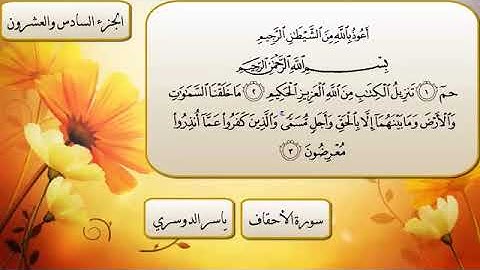 الجزء السادس والعشرون
أَعُوذُ بِاللَّهِ مِنَ الشَّيْطَانِ الرَّجِيمِ
بِسْمِ اللَّهِ الرَّحْمَٰنِ الرَّحِيمِ
حمٓ ۝١ تَنزِيلُ الْكِتَٰبِ مِنَ اللَّهِ الْعَزِيزِ الْحَكِيمِ ۝٢ مَا خَلَقْنَا السَّمَٰوَٰتِ
وَالْأَرْضَ وَمَا بَيْنَهُمَآ إِلَّا بِالْحَقِّ وَأَجَلٍ مُّسَمًّى ۚ وَالَّذِينَ كَفَرُوا عَمَّآ أُنذِرُوا
مُعْرِضُونَ ۝٣
سورة الأحقاف
ياسر الدوسري